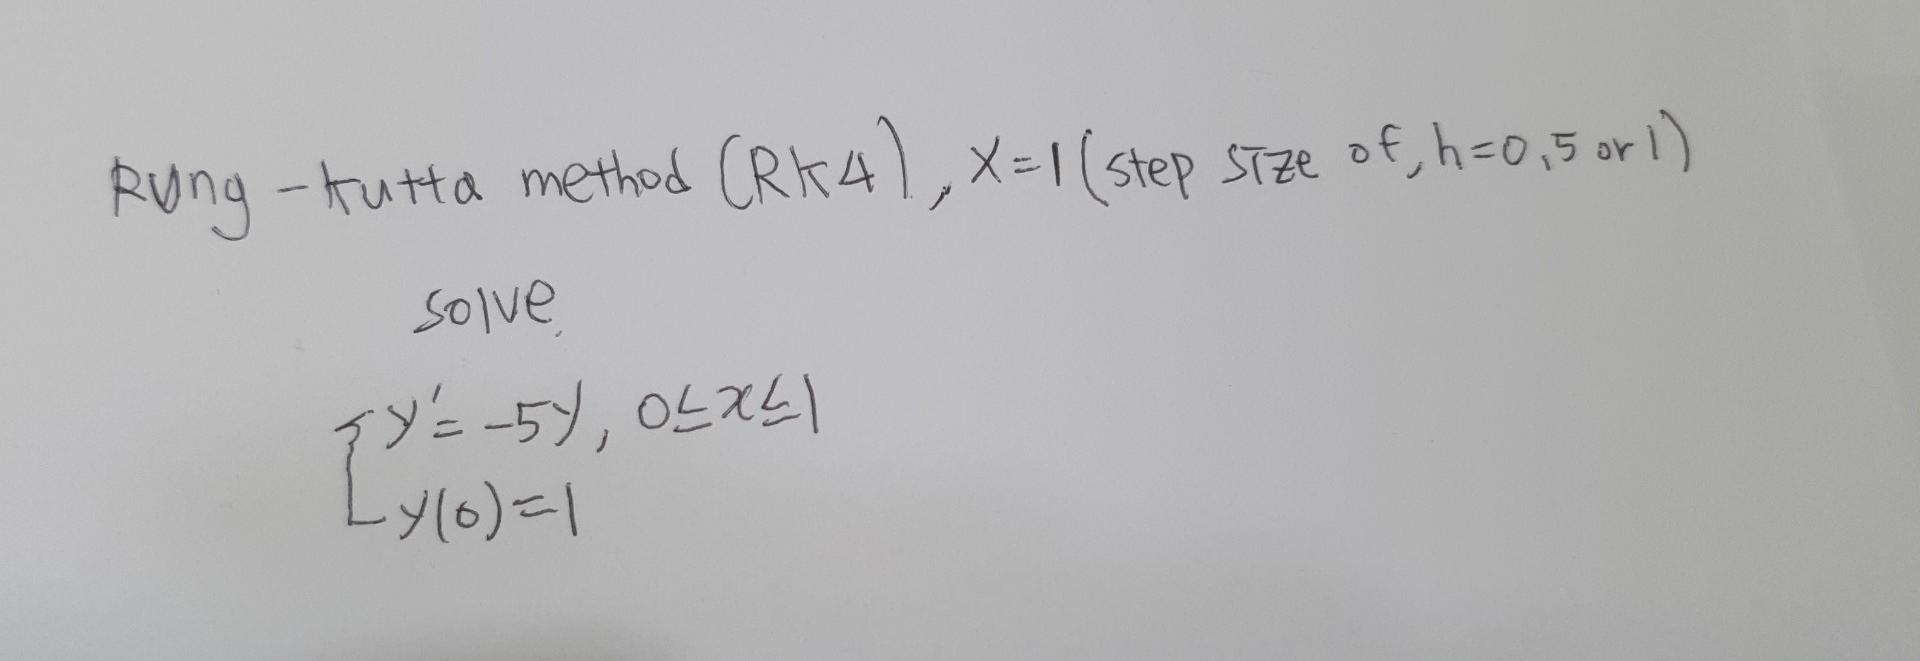 Rung-kutta method (RK4), X=1 (step size of, h=0,5 or 1)
solve
y'=-5y, 0≤x≤1
y(0)=1